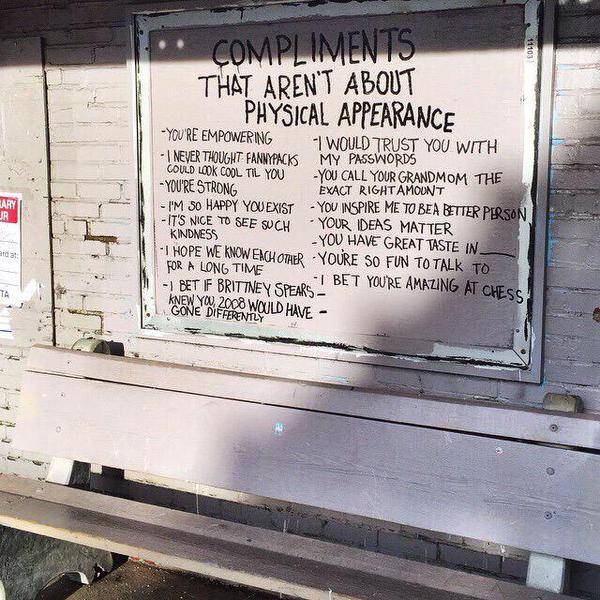 COMPLIMENTS
THAT AREN'T ABOUT
PHYSICAL APPEARANCE
-YOU'RE EMPOWERING
-I NEVER THOUGHT FANNYPACKS
COULD LOOK COOL TIL YOU
-YOU'RE STRONG
-I'M SO HAPPY YOU EXIST
-IT'S NICE TO SEE SUCH
KINDNESS
-I HOPE WE KNOW EACH OTHER
FOR A LONG TIME
-I BET IF BRITTNEY SPEARS
KNEW YOU, 2008 WOULD HAVE
GONE DIFFERENTLY
-I WOULD TRUST YOU WITH
MY PASSWORDS
-YOU CALL YOUR GRANDMOM THE
EXACT RIGHT AMOUNT
-YOU INSPIRE ME TO BE A BETTER PERSON
-YOUR IDEAS MATTER
-YOU HAVE GREAT TASTE IN____
-YOU'RE SO FUN TO TALK TO
-I BET YOU'RE AMAZING AT CHESS
-
-
ARY
UR
ard at:
TA